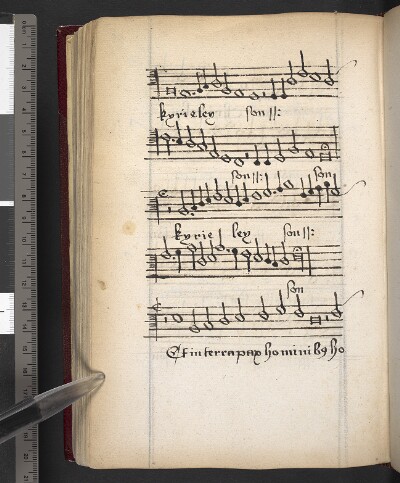 kyrieley son ſſ:
son ſſ: son
kyrie ley son ſſ:
son
Et in terra pax hominibꝯ bo